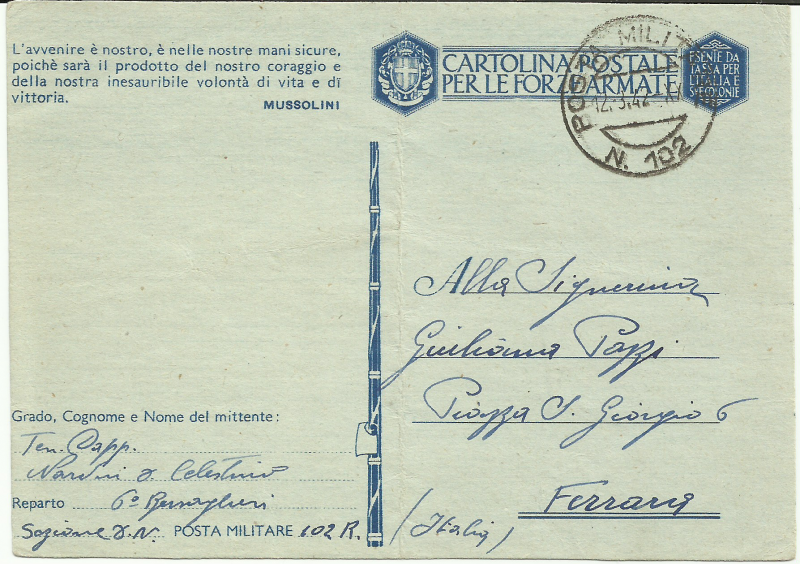 L'avvenire è nostro, è nelle nostre mani sicure,
poichè sarà il prodotto del nostro coraggio e
della nostra inesauribile volontà di vita e di
vittoria.
MUSSOLINI
CARTOLINA POSTALE
PER LE FORZE ARMATE
ESENTE DA
TASSA PER
L'ITALIA E
SUE COLONIE
POSTA MILITARE
12.3.42
N. 102
Alla Signorina
Giuliana Pazzi
Piazza S. Giorgio 6
Ferrara
(Italia)
Grado, Cognome e Nome del mittente:
Ten. Capp.
Nardini d. Celestino
Reparto 6° Bersaglieri
Sezione POSTA MILITARE 102 R.